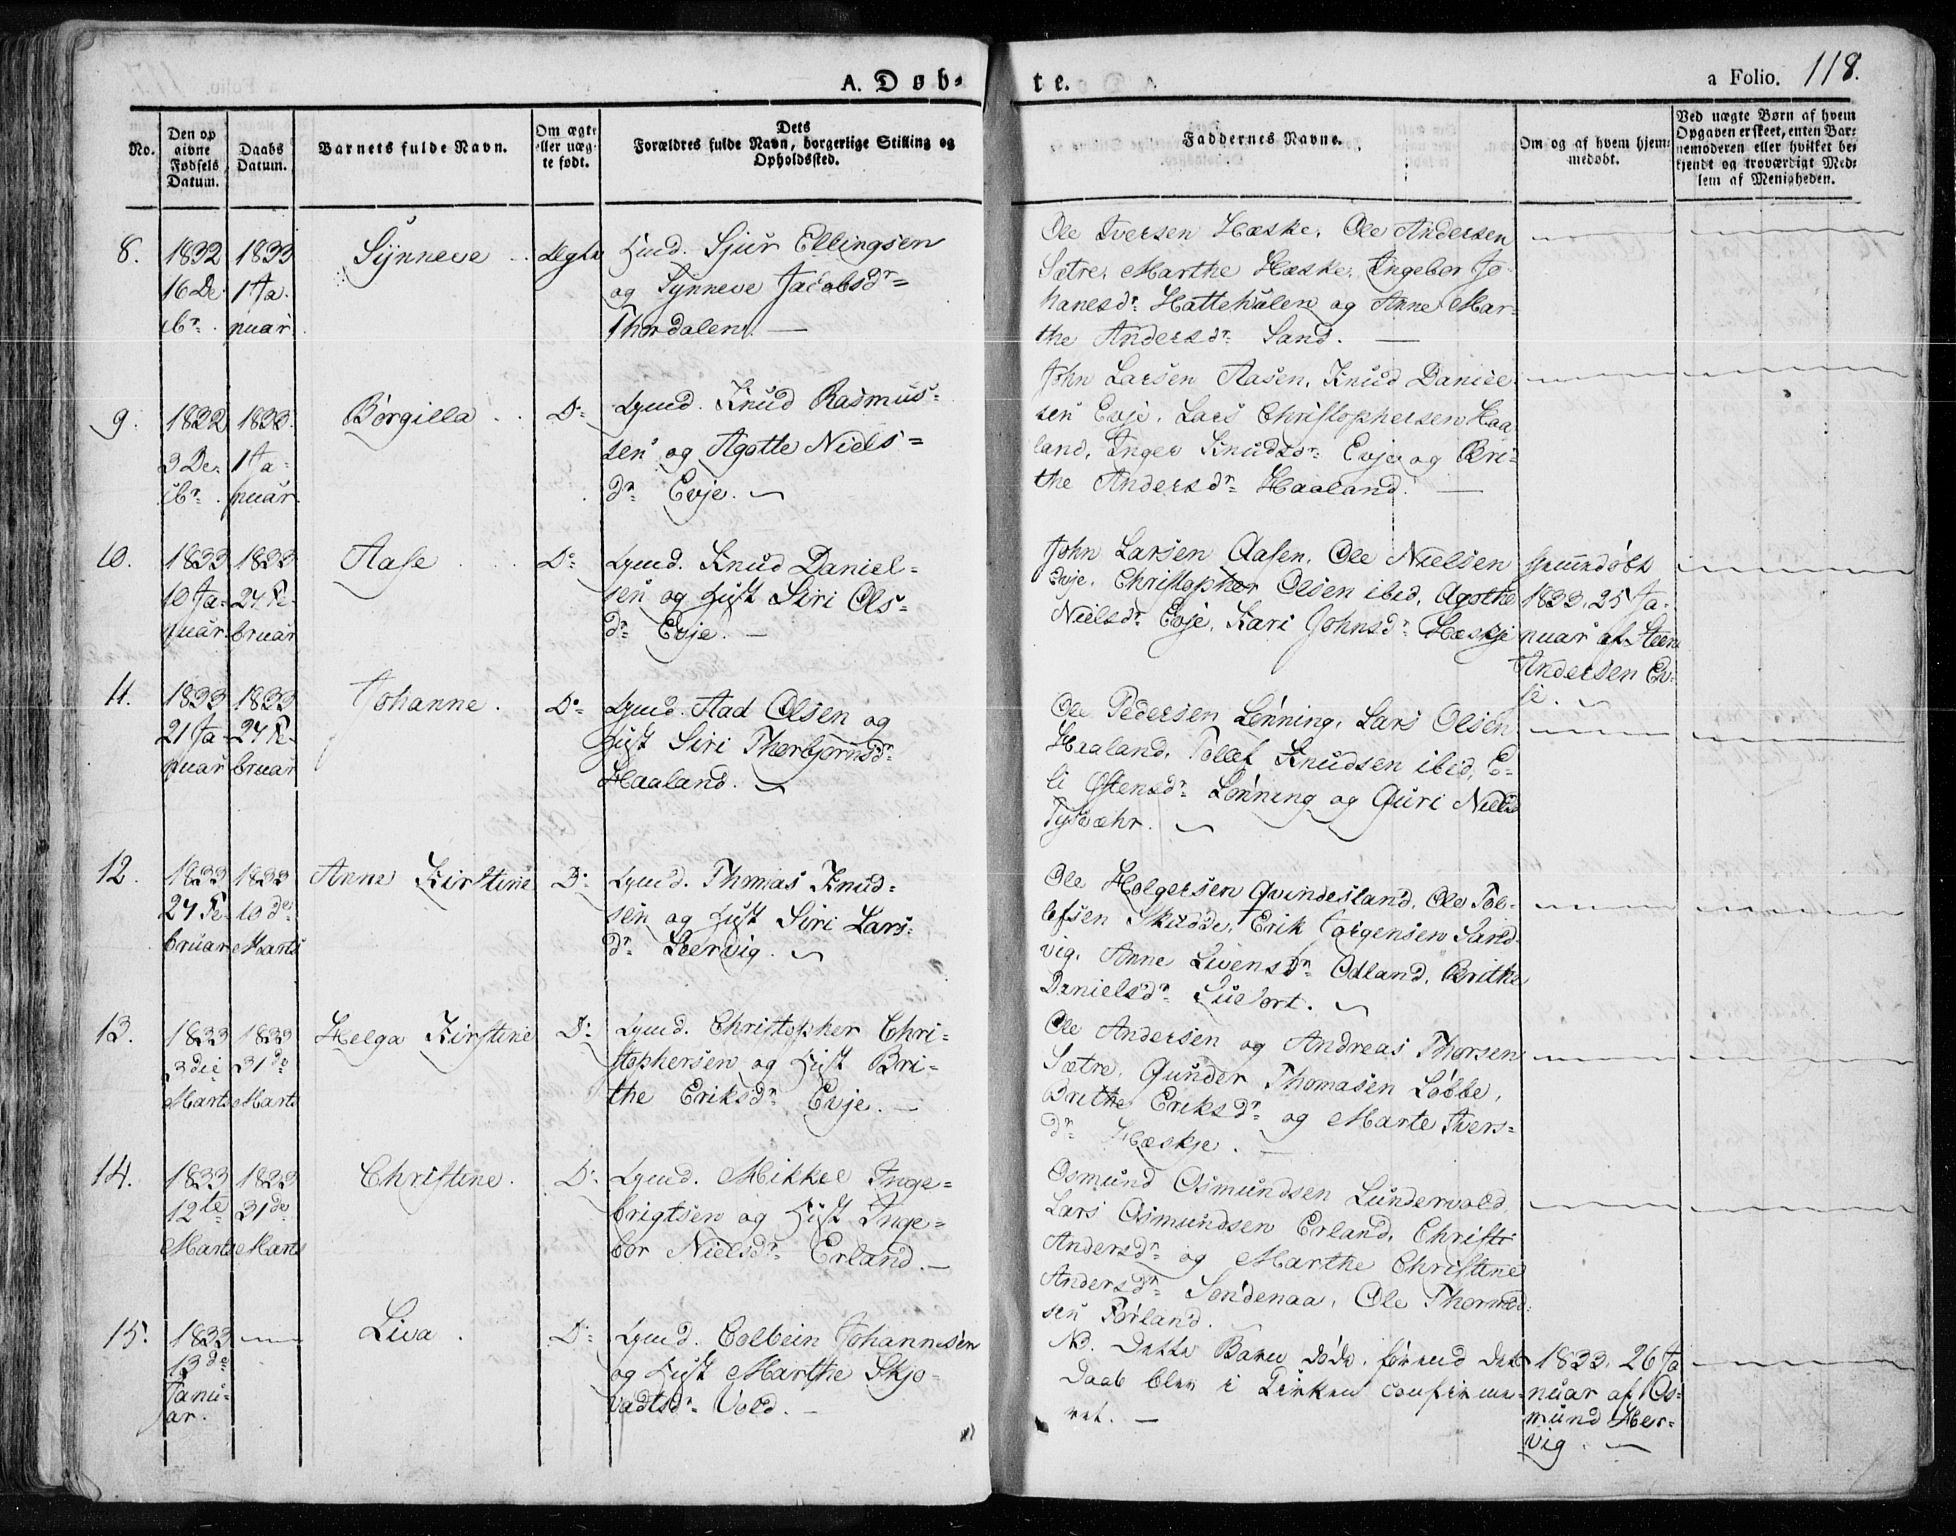 A. Døb-
te.
a Folio. 118.
No.
Den op
givne
Fødsels
Datum.
Daabs
Datum.
Barnets fulde Navn.
Om ægte
eller uæg-
te født.
Dets
Forældres fulde Navn, borgerlige Stilling og
Opholdssted.
Faddernes Navne.
Om og af hvem hjem-
medøbt.
Ved uægte Børn af hvem
Opgaven er skeet, enten Bar-
nemoderen eller hvilket be-
kjendt og troværdigt Med-
lem af Menigheden.
8.
1832
16 De-
cbr.
1833
1 Ja-
nuar
Synneve
Ægte
Sjur Ellingsen
og Synneve Jacobsdr
Thordalen. —
Ole Iversen Hæske, Ole Andersen
Sætre, Marthe Hæske, Ingebor Jo-
hanesdr Hattehålen og Anne Mar-
the Andersdr Sand. —
9.
1832
3 De-
cbr.
1833.
1 Ja-
nuar.
Børgilla
Do
Knud Rasmus-
sen og Agothe Niels-
dr Evje.
John Larsen Aasen, Knud Daniel-
sen Evje, Lars Christophersen Haa-
land, Inger Knudsdr Evje og Bri-
the Andersdr Haaland. —
10.
1833
10 Ja-
nuar
1833
24 Fe-
bruar
Aase
Do
Knud Daniel-
sen og Hust Siri Ols-
dr Evje. —
John Larsen Aasen, Ole Nielsen
Evje, Christopher Olsen ibid, Agothe
Nielsdr Evje, Kari Johnsdr Hæskje
hjemmedøbt
1833, 25 Ja-
nuar af Steen
Andersen Ev-
je.
11.
1833
21 Ja-
nuar
1833
24 Fe-
bruar
Johanne.
Do
Aad Olsen og
Hust Siri Thorbjornsdr
Haaland.
Ole Pedersen Lønning, Lars Olsen
Haaland, Tollef Knudsen ibid, E-
li Østensdr Lønning og Guri Nielsd
Tysvæhr.
12.
1833
24 Fe-
bruar
1833
10de
Marts
Anne Kirstine
Do
Thomas Knud-
sen og Hust Siri Lars-
dr Leervig.
Ole Holgersen Qvindesland, Ole Tol-
lefsen Skudde, Erik Torgensen Sand-
vig, Anne Livensdr Odland, Brithe
Danielsdr
13.
1833
3die
Marts
1833
31de
Marts
Helga Kirstine
Do
Christopher Chri-
stophersen og Hust Bri-
the Eriksdr Evje. —
Ole Andersen og Andreas Thorsen
Sætre, Gunder Thomasen Løbbe,
Brithe Eriksdr og Marte Ivers-
dr Hæskje.
14.
1833
12te
Marts
1833
31de
Marts
Christine.
Do
Mikkel Inge-
brigtsen og Hust Inge-
bor Nielsdr Erland. —
Osmund Osmundsen Lundervold,
Lars Osmundsen Erland, Christi
Andersdr og Marthe Christine
Andersdr Søndenaa, Ole Thormod-
sen Førland.
15.
1833
13de
Janu-
ar.
Liva.
Do
Colbein Johannesen
og Hust Marthe Skjo-
vadtsdr Vold. —
NB. Dette Barn døde, førend dets
Daab blev i Kirken confirme-
ret. —
1833, 26 Ja
nuar af Os-
mund Her-
vig. —